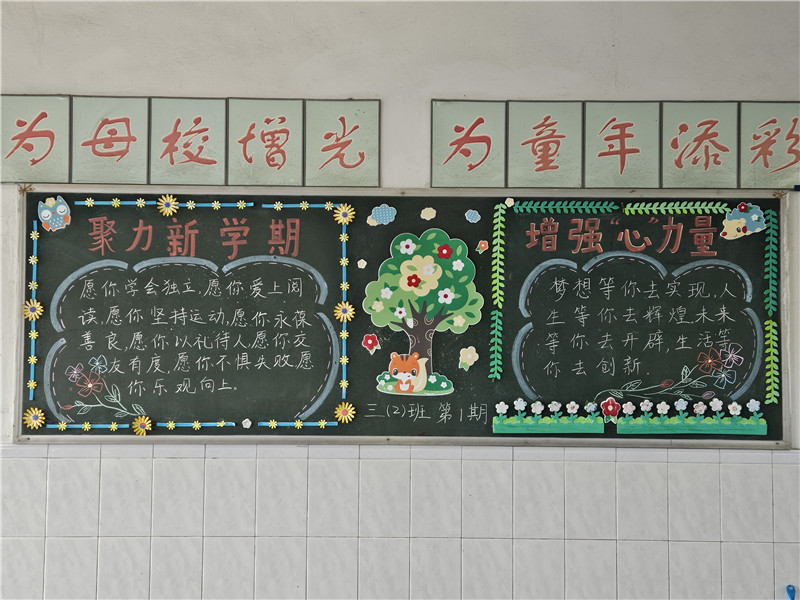 为母校增光
为童年添彩
聚力新学期
愿你学会独立,愿你爱上阅
读,愿你坚持运动,愿你永葆
善良,愿你以礼待人,愿你交
友有度,愿你不惧失败,愿
你乐观向上。
三(2)班 第1期
增强“心”力量
梦想等你去实现,人
生等你去辉煌,未来
等你去开辟,生活等
你去创新.